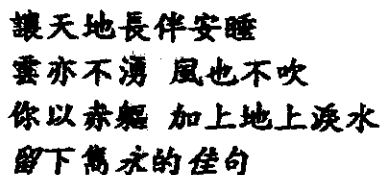 讓天地長伴安睡
雲亦不湧 風也不吹
你以赤軀 加上地上淚水
留下雋永的佳句